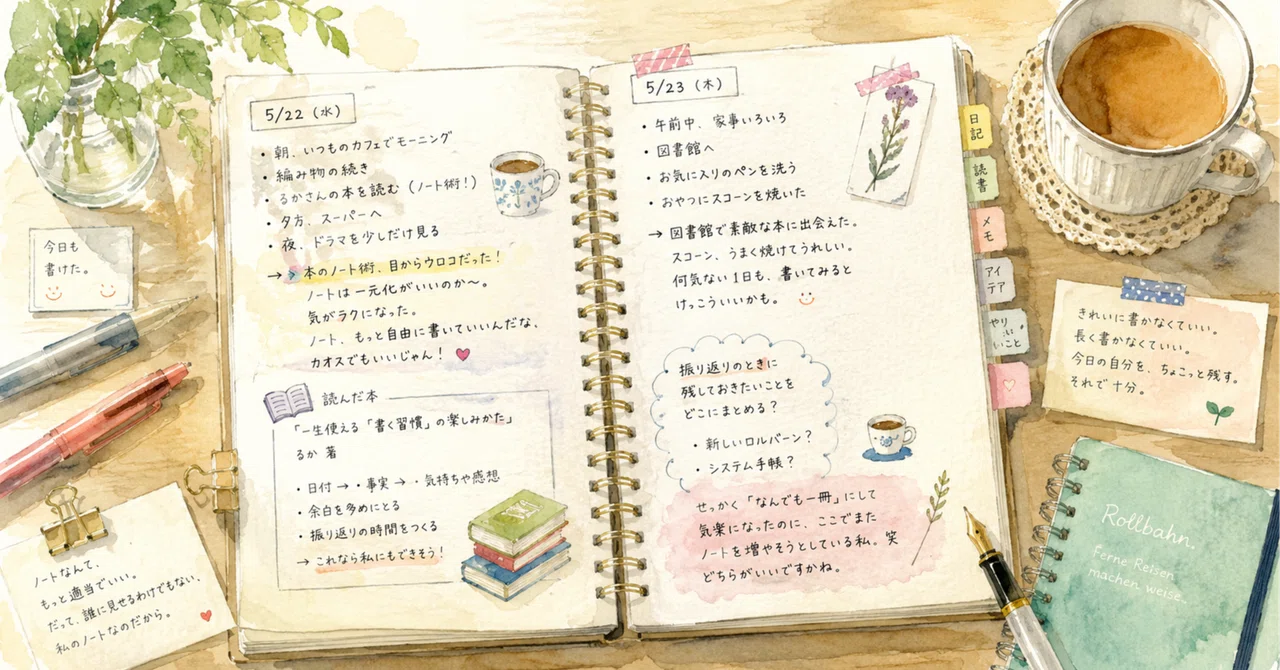 5/22（水）
・朝、いつものカフェでモーニング
・編み物の続き
・るかさんの本を読む（ノート術！）
・夕方、スーパーへ
・夜、ドラマを少しだけ見る
→ 本のノート術、目からウロコだった！
ノートは一元化がいいのか〜。
気がラクになった。
ノート、もっと自由に書いていいんだな、
カオスでもいいじゃん！
読んだ本
「一生使える「書く習慣」の楽しみかた」
るか 著
・日付 → ・事実 → ・気持ちや感想
・余白を多めにとる
・振り返りの時間をつくる
→ これなら私にもできそう！
5/23（木）
・午前中、家事いろいろ
・図書館へ
・お気に入りのペンを洗う
・おやつにスコーンを焼いた
→ 図書館で素敵な本に出会えた。
スコーン、うまく焼けてうれしい。
何気ない1日も、書いてみると
けっこういいかも。
振り返りのときに
残しておきたいことを
どこにまとめる？
・新しいロルバーン？
・システム手帳？
せっかく「なんでも一冊」にして
気楽になったのに、ここでまた
ノートを増やそうとしている私。笑
どちらがいいですかね。
日記
読書
メモ
アイ
テア
やり
いこと
今日も
書けた。
ノートなんて、
もっと適当でいい。
だって、誰に見せるわけでもない、
私のノートなのだから。
きれいに書かなくていい。
長く書かなくていい。
今日の自分を、ちょこっと残す。
それで十分。
Rollbahn.
Ferne Reisen
machen weise.